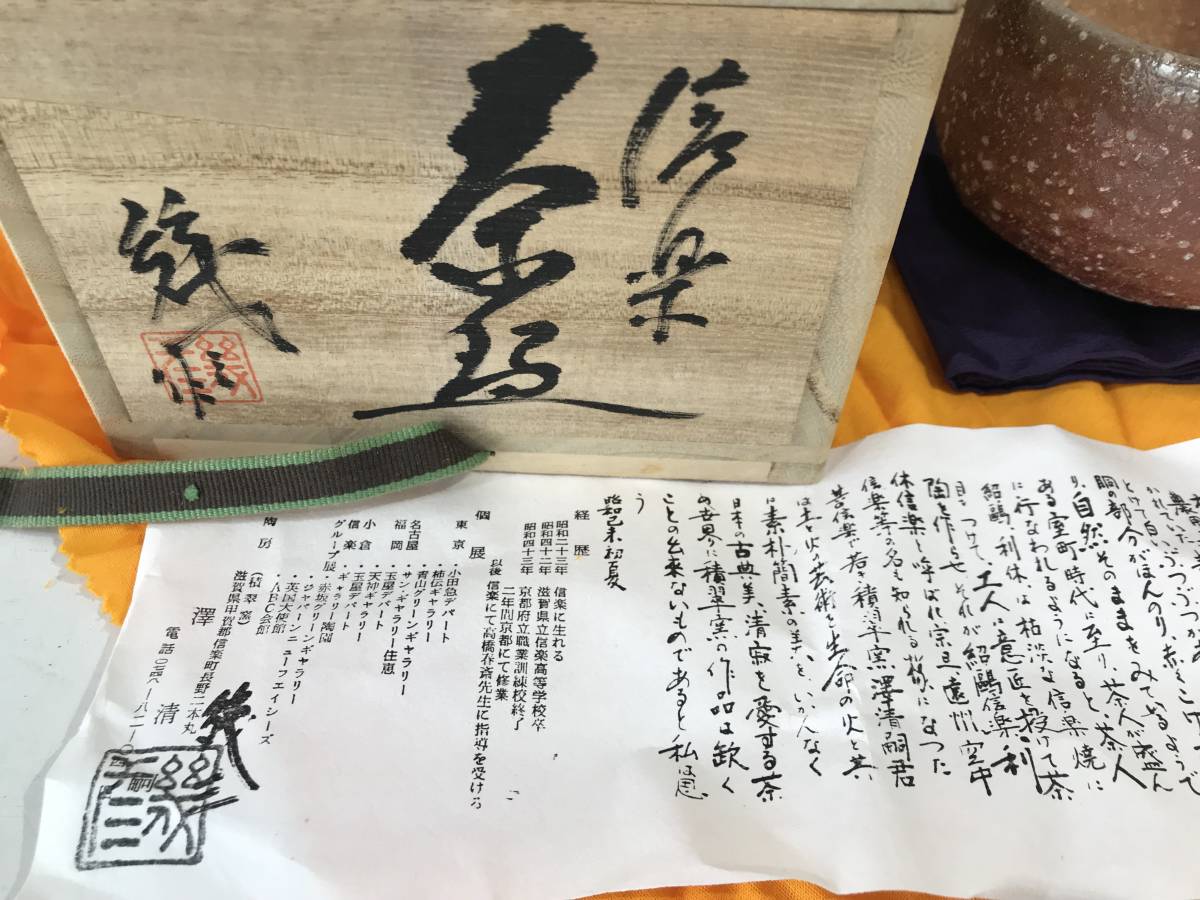 信楽
茶盌
作
とけて白い
胴の部分がほんのり赤く
り、自然そのままをみてゐるようで
ある室町時代に至り、茶人が盛ん
に行なわれるようになると、茶人
紹鷗、利休は枯淡な信楽焼に
目をつけて、工人に意匠を授けて茶
陶を作らせ、それが紹鷗信楽、利
休信楽と呼ばれ宗旦、遠州、空中
信楽等の名も知られる様になった
古信楽で若き積翠窯澤清嗣君
は土と火の芸術を生命の火と共
に素朴簡素の美を、いかんなく
日本の古典美、清寂を愛する茶
の世界に積翠窯の作品は欠く
ことの出来ないものであると私は思
う
昭和己未初夏
経歴
昭和二十三年 信楽に生れる
昭和四十二年 滋賀県立信楽高等学校卒
昭和四十三年 京都府立職業訓練校終了
二年間京都にて修業
以後 信楽にて高橋春斎先生に指導を受ける
個展
東京 ・小田急デパート
・柿伝ギャラリー
・青山グリーンギャラリー
名古屋 ・サン・ギャラリー住恵
福岡 ・玉屋デパート
・天神ギャラリー
小倉 ・玉屋デパート
信楽 ・ギャラリー陶園
グループ展 ・赤坂グリーンギャラリー
・ジャパーンニューフェイシーズ
・英国大使館
・ABC会館
陶房 (積翠窯)
滋賀県甲賀郡信楽町長野二本丸
澤 清嗣